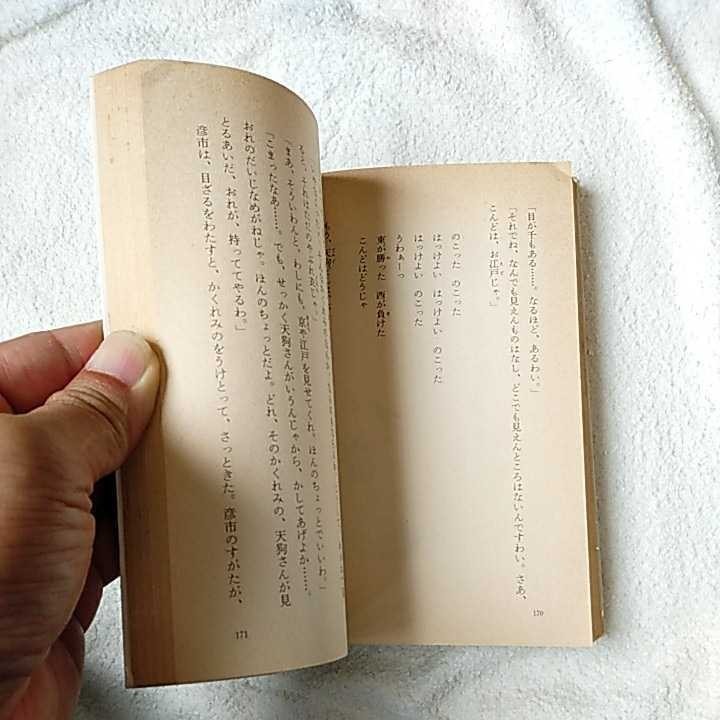 「目が千もある……。なるほど、あるわい。」
「それでね、なんでも見えんものはなし、どこでも見えんところはないんですわい。さあ、
こんどは、お江戸じゃ。」
のこった のこった
はっけよい のこった
はっけよい はっけよい のこった
うわぁーっ
東が勝った 西が負けた
こんどはどうじゃ
170
「まあ、そういわんと、わしにも、京や江戸を見せてくれ。ほんのちょっとでいいわ。」
「こまったなあ……。でも、せっかく天狗さんがいうんじゃから、かしてあげよか……。
おれのだいじなめがねじゃ。ほんのちょっとだよ。どれ、そのかくれみの、天狗さんが見
とるあいだ、おれが、持っててやるわ。」
彦市は、目ざるをわたすと、かくれみのをうけとって、さっときた。彦市のすがたが、
171